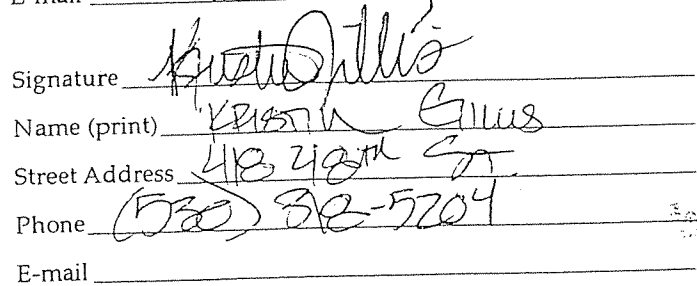 E-mail
Signature Kristin Gillis
Name (print) KRISTIN Gillis
Street Address 418 48th ST.
Phone (530) 318-5204
E-mail